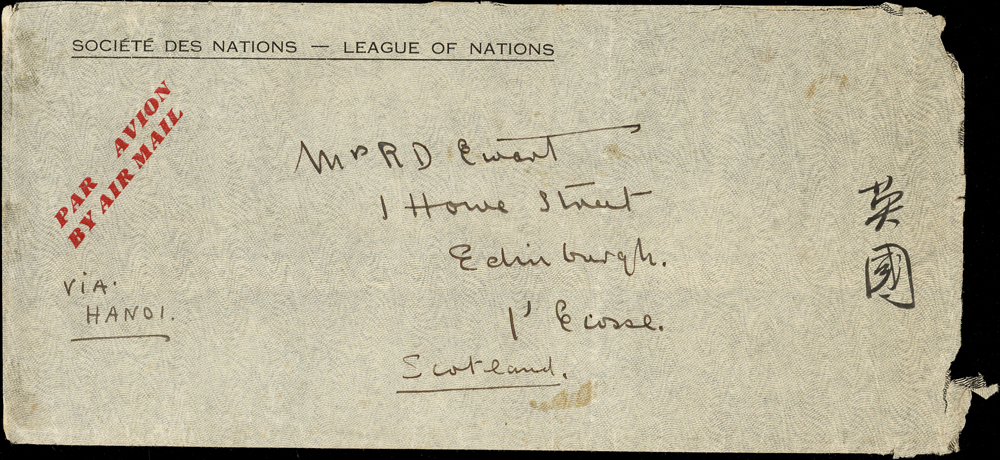 SOCIÉTÉ DES NATIONS — LEAGUE OF NATIONS
PAR AVION
BY AIR MAIL
Mr R D Ewart
1 Howe Street
Edinburgh.
l' Ecosse.
Scotland.
VIA.
HANOI.
英國